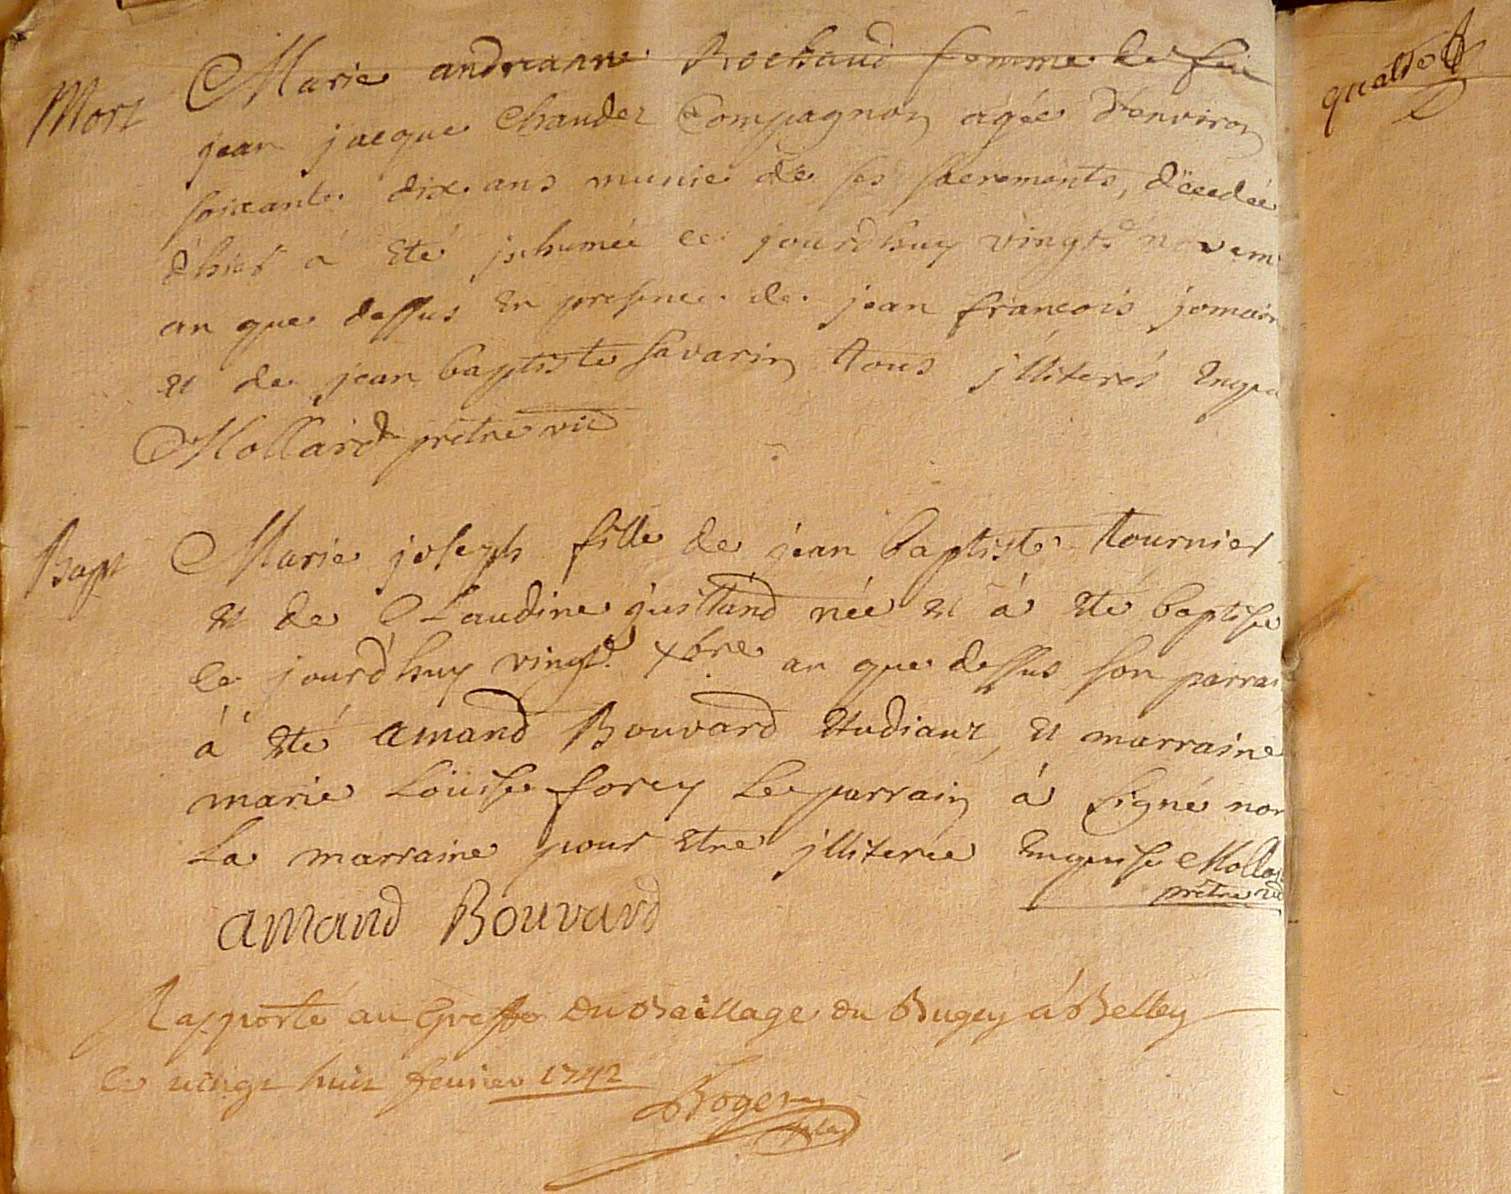 quatre
Mort Marie andreanne Rochaud femme de feu
jean jacque Chaudet Compagnon agée d'environ
soixante dix ans munie de ses sacrements, décedée
d'hier à été jnhumée ce jourd'huy vingt novem
an que dessus en presence de jean francois jomain
et de jean baptiste savarin tous jlliterés enqui
Mollard prêtre vic
Bapt Marie joseph fille de jean baptiste tournier
et de Claudine justand née et à été baptisée
ce jourd'huy vingt xbre an que dessus son parrai
à été amand Bouvard etudiant, et marraine
marie Loüise forey Le parrain à signé non
La marraine pour etre jlliterée enquise Molla
prêtre vic
amand Bouvard
Rapporté au Greffe du Baillage du Bugey à Belley
le vingt huit fevrier 1742
Roger